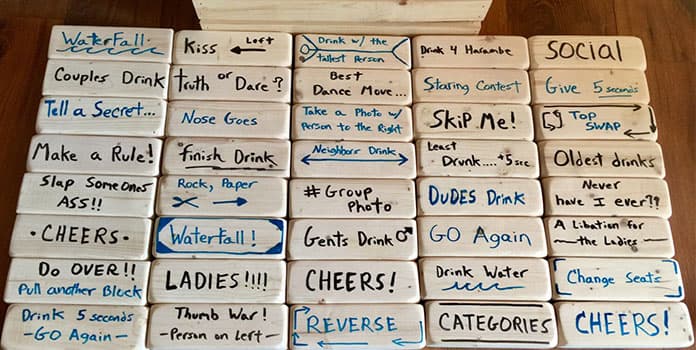 WaterFall.
Kiss Left
Drink w/ the
tallest Person
Drink 4 Harambe
SOCIAL
Couples Drink
truth or Dare?
Best
Dance Move...
Staring Contest
Give 5 seconds
Tell a Secret...
Nose Goes
Take a Photo w/
Person to the Right
SKiP Me!
TOP
SWAP
Make a Rule!
finish Drink
Neighbor Drink
Least
Drunk....+5sec
Oldest drinks
Slap Someones
ASS!!
Rock, Paper
#Group
Photo
DUDES Drink
Never
have I ever??
•CHEERS•
Waterfall!
Gents Drink
GO Again
A Libation for
the Ladies
Do OVER!!
Pull another Block
LADIES!!!!
CHEERS!
Drink Water
Change Seats
Drink 5 seconds
-GO Again-
Thumb War!
-Person on Left-
REVERSE
CATEGORIES
CHEERS!